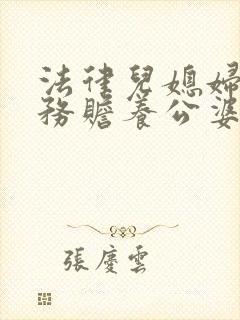 法律兒媳婦
務贍養公婆
張慶雲